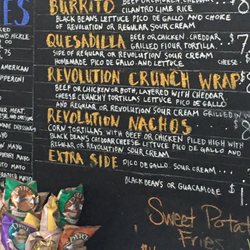 BURRITO
CILANTRO LIME RICE
BLACK BEANS LETTUCE PICO DE GALLO AND CHOICE
OF REVOLUTION OR REGULAR SOUR CREAM
QUESADILLA CHICKEN, CHEDDAR
GRILLED FLOUR TORTILLA
SIDE OF REGULAR OR REVOLUTION SOUR CREAM
HOMEMADE PICO DE GALLO AND LETTUCE CHEESE
REVOLUTION CRUNCH WRAP
BEEF OR CHICKEN OR BOTH, LAYERED WITH CHEDDAR
CHEESE CRUNCHY TORTILLAS LETTUCE PICO DE GALLO
AND REGULAR OR REVOLUTION SOUR CREAM GRILLED IN
REVOLUTION NACHOS
CORN TORTILLAS WITH BEEF OR CHICKEN PILED HIGH WITH
BLACK BEANS CHEDDAR CHEESE LETTUCE PICO DE GALLO AND
OR REGULAR SOUR CREAM
EXTRA SIDE PICO, SOUR CREAM
BLACK BEANS OR GUACAMOLE
Sweet Pota
Fries